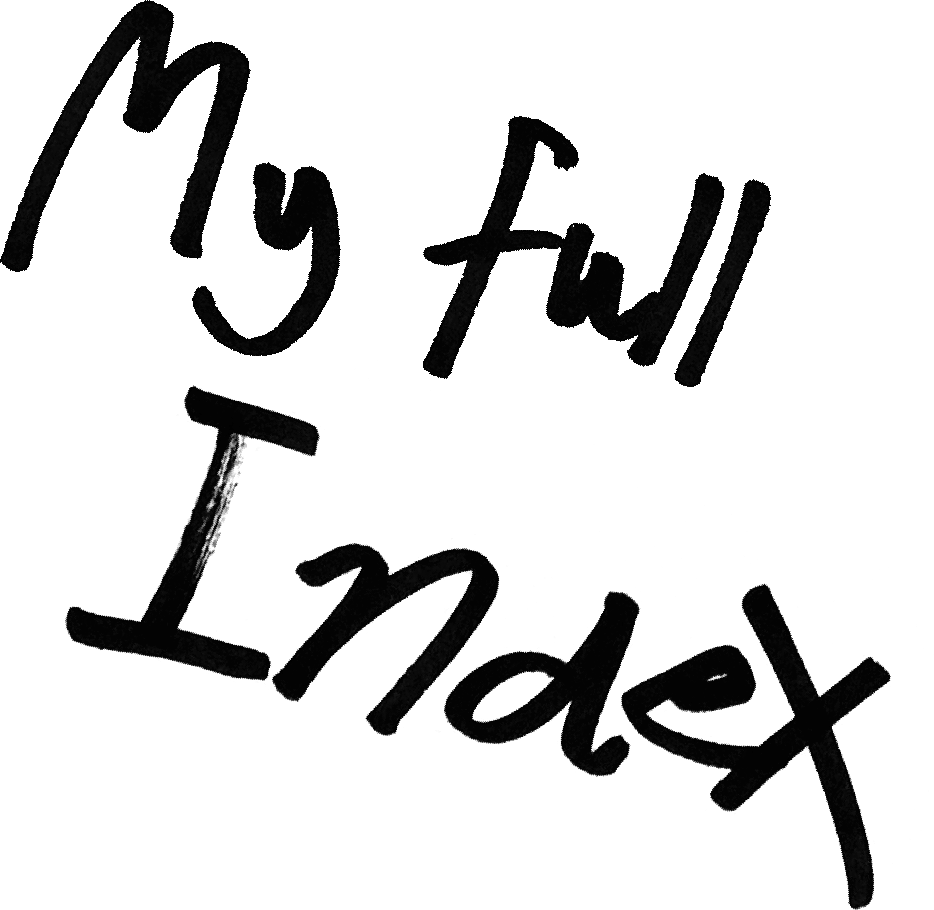 My full
Index